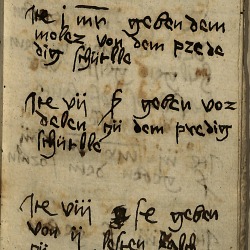 Ite i mr geben dem
molez von dem prede
dig schürlle
Ite vij ß geben voz
delen zü dem predig
schürlle
Ite viij ße geben
von ij